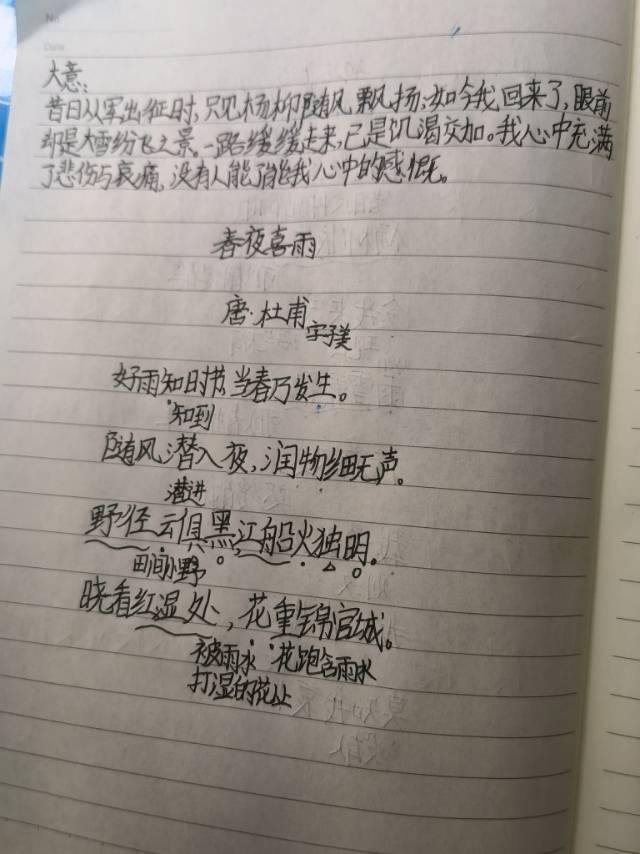 No
Date
大意:
昔日从军出征时,只见杨柳随风飘扬;如今我回来了,眼前
却是大雪纷飞之景。一路缓缓走来,已是饥渴交加。我心中充满
了悲伤与哀痛,没有人能了能我心中的感慨。
春夜喜雨
唐·杜甫 字子美
好雨知时节,当春乃发生。
知到
随风潜入夜,润物细无声。
潜进
野径云俱黑,江船火独明。
田间小野
晓看红湿处,花重锦官城。
被雨水 花饱含雨水
打湿的花丛